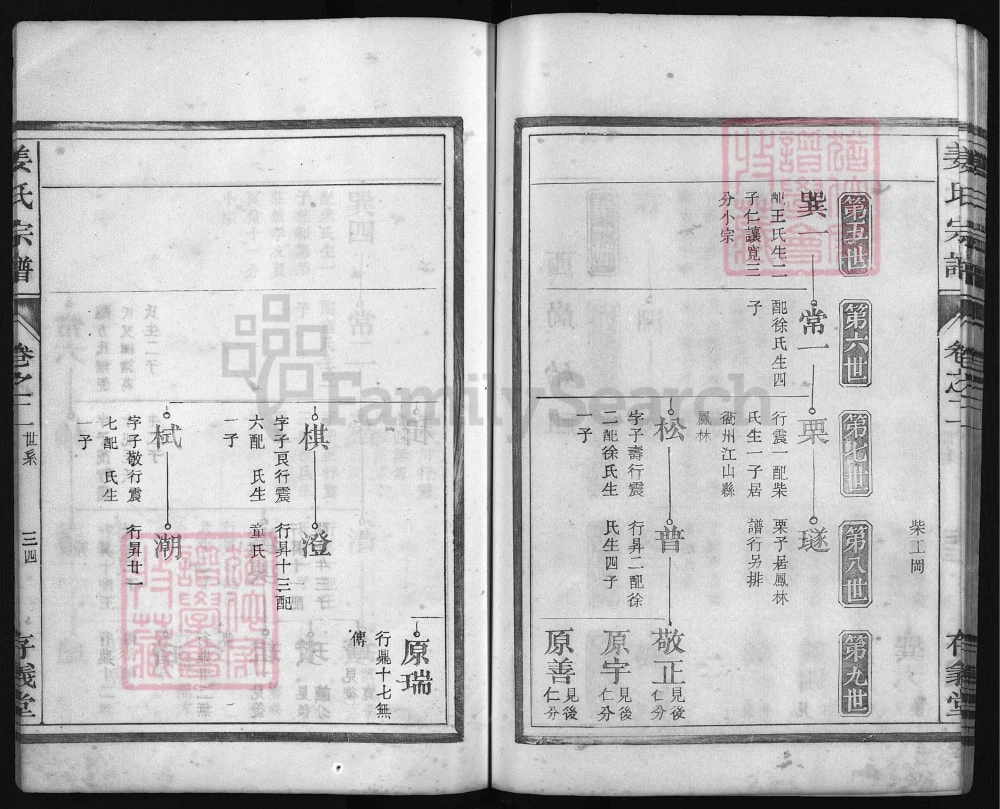 柴工岡
第五世
第六世
第七世
第八世
第九世
巽一
配王氏生二
子仁讓寬三
分小宗
常一
配徐氏生四
子
栗
行震一配柴
氏生一子居
衢州江山縣
鳳林
璲
栗子居鳳林
譜行另排
松
字子壽行震
二配徐氏生
一子
普
行昇二配徐
氏生四子
敬正
見後
仁分
原宇
見後
仁分
原善
見後
仁分
姜氏宗譜
卷之二
世系
三四
存義堂
原瑞
行鼎十七無
傳
棋
字子良行震
六配 氏生
一子
澄
行昇十三配
童氏
栻
字子敬行震
七配 氏生
一子
潮
行昇廿一
FamilySearch